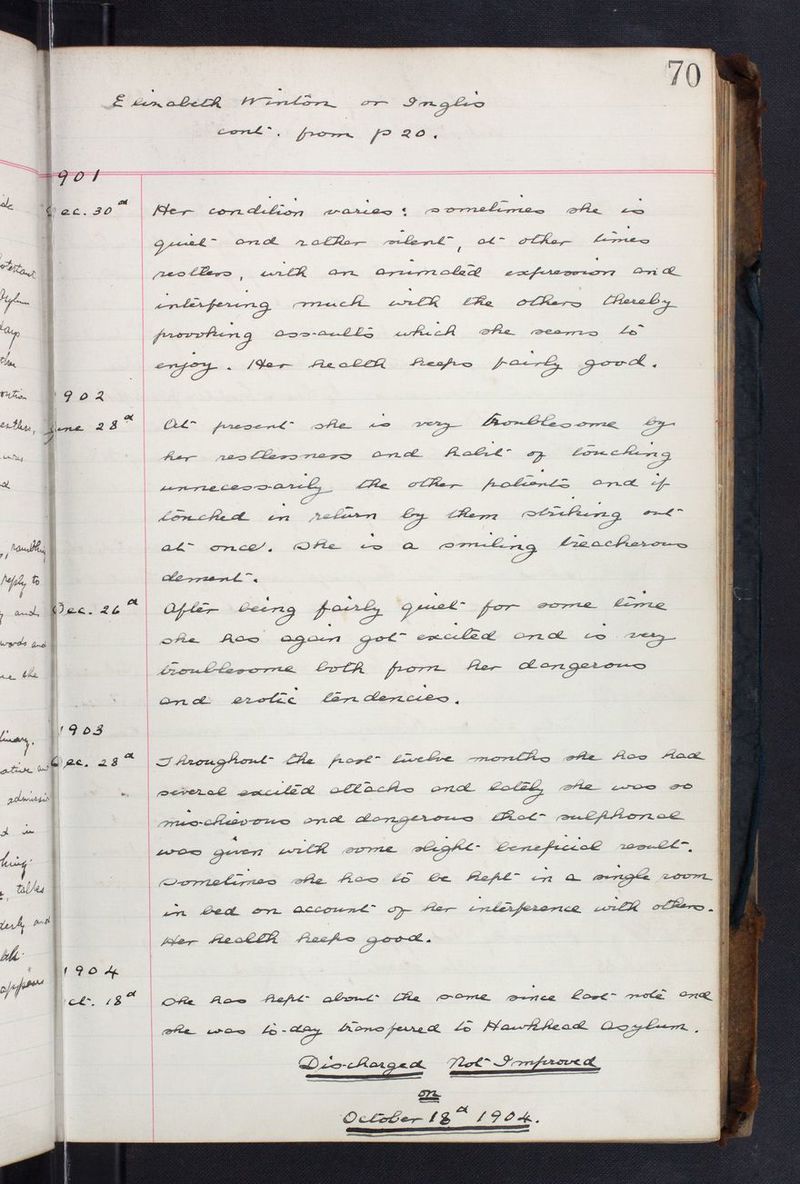 70
Elizabeth Winton or Inglis
cont. from p 20.
1901
Dec. 30th Her condition varies: sometimes she is
quiet and rather silent, at other times
restless, with an animated expression and
interfering much with the others thereby
provoking assaults which she seems to
enjoy. Her health keeps fairly good.
1902
June 28th At present she is very troublesome by
her restlessness and habit of touching
unnecessarily the other patients and if
touched in return by them striking out
at once. She is a smiling treacherous
dement.
Dec. 26th After being fairly quiet for some time
she has again got excited and is very
troublesome both from her dangerous
and erotic tendencies.
1903
Dec. 28th Throughout the past twelve months she has had
several excited attacks and lately she was so
mischievous and dangerous that sulphonal
was given with some slight beneficial result.
Sometimes she has to be kept in a single room
in bed on account of her interference with others.
Her health keeps good.
1904
Oct. 18th She has kept about the same since last note and
she was to-day transferred to Hawkhead Asylum.
Discharged Not Improved
on
October 18th 1904.